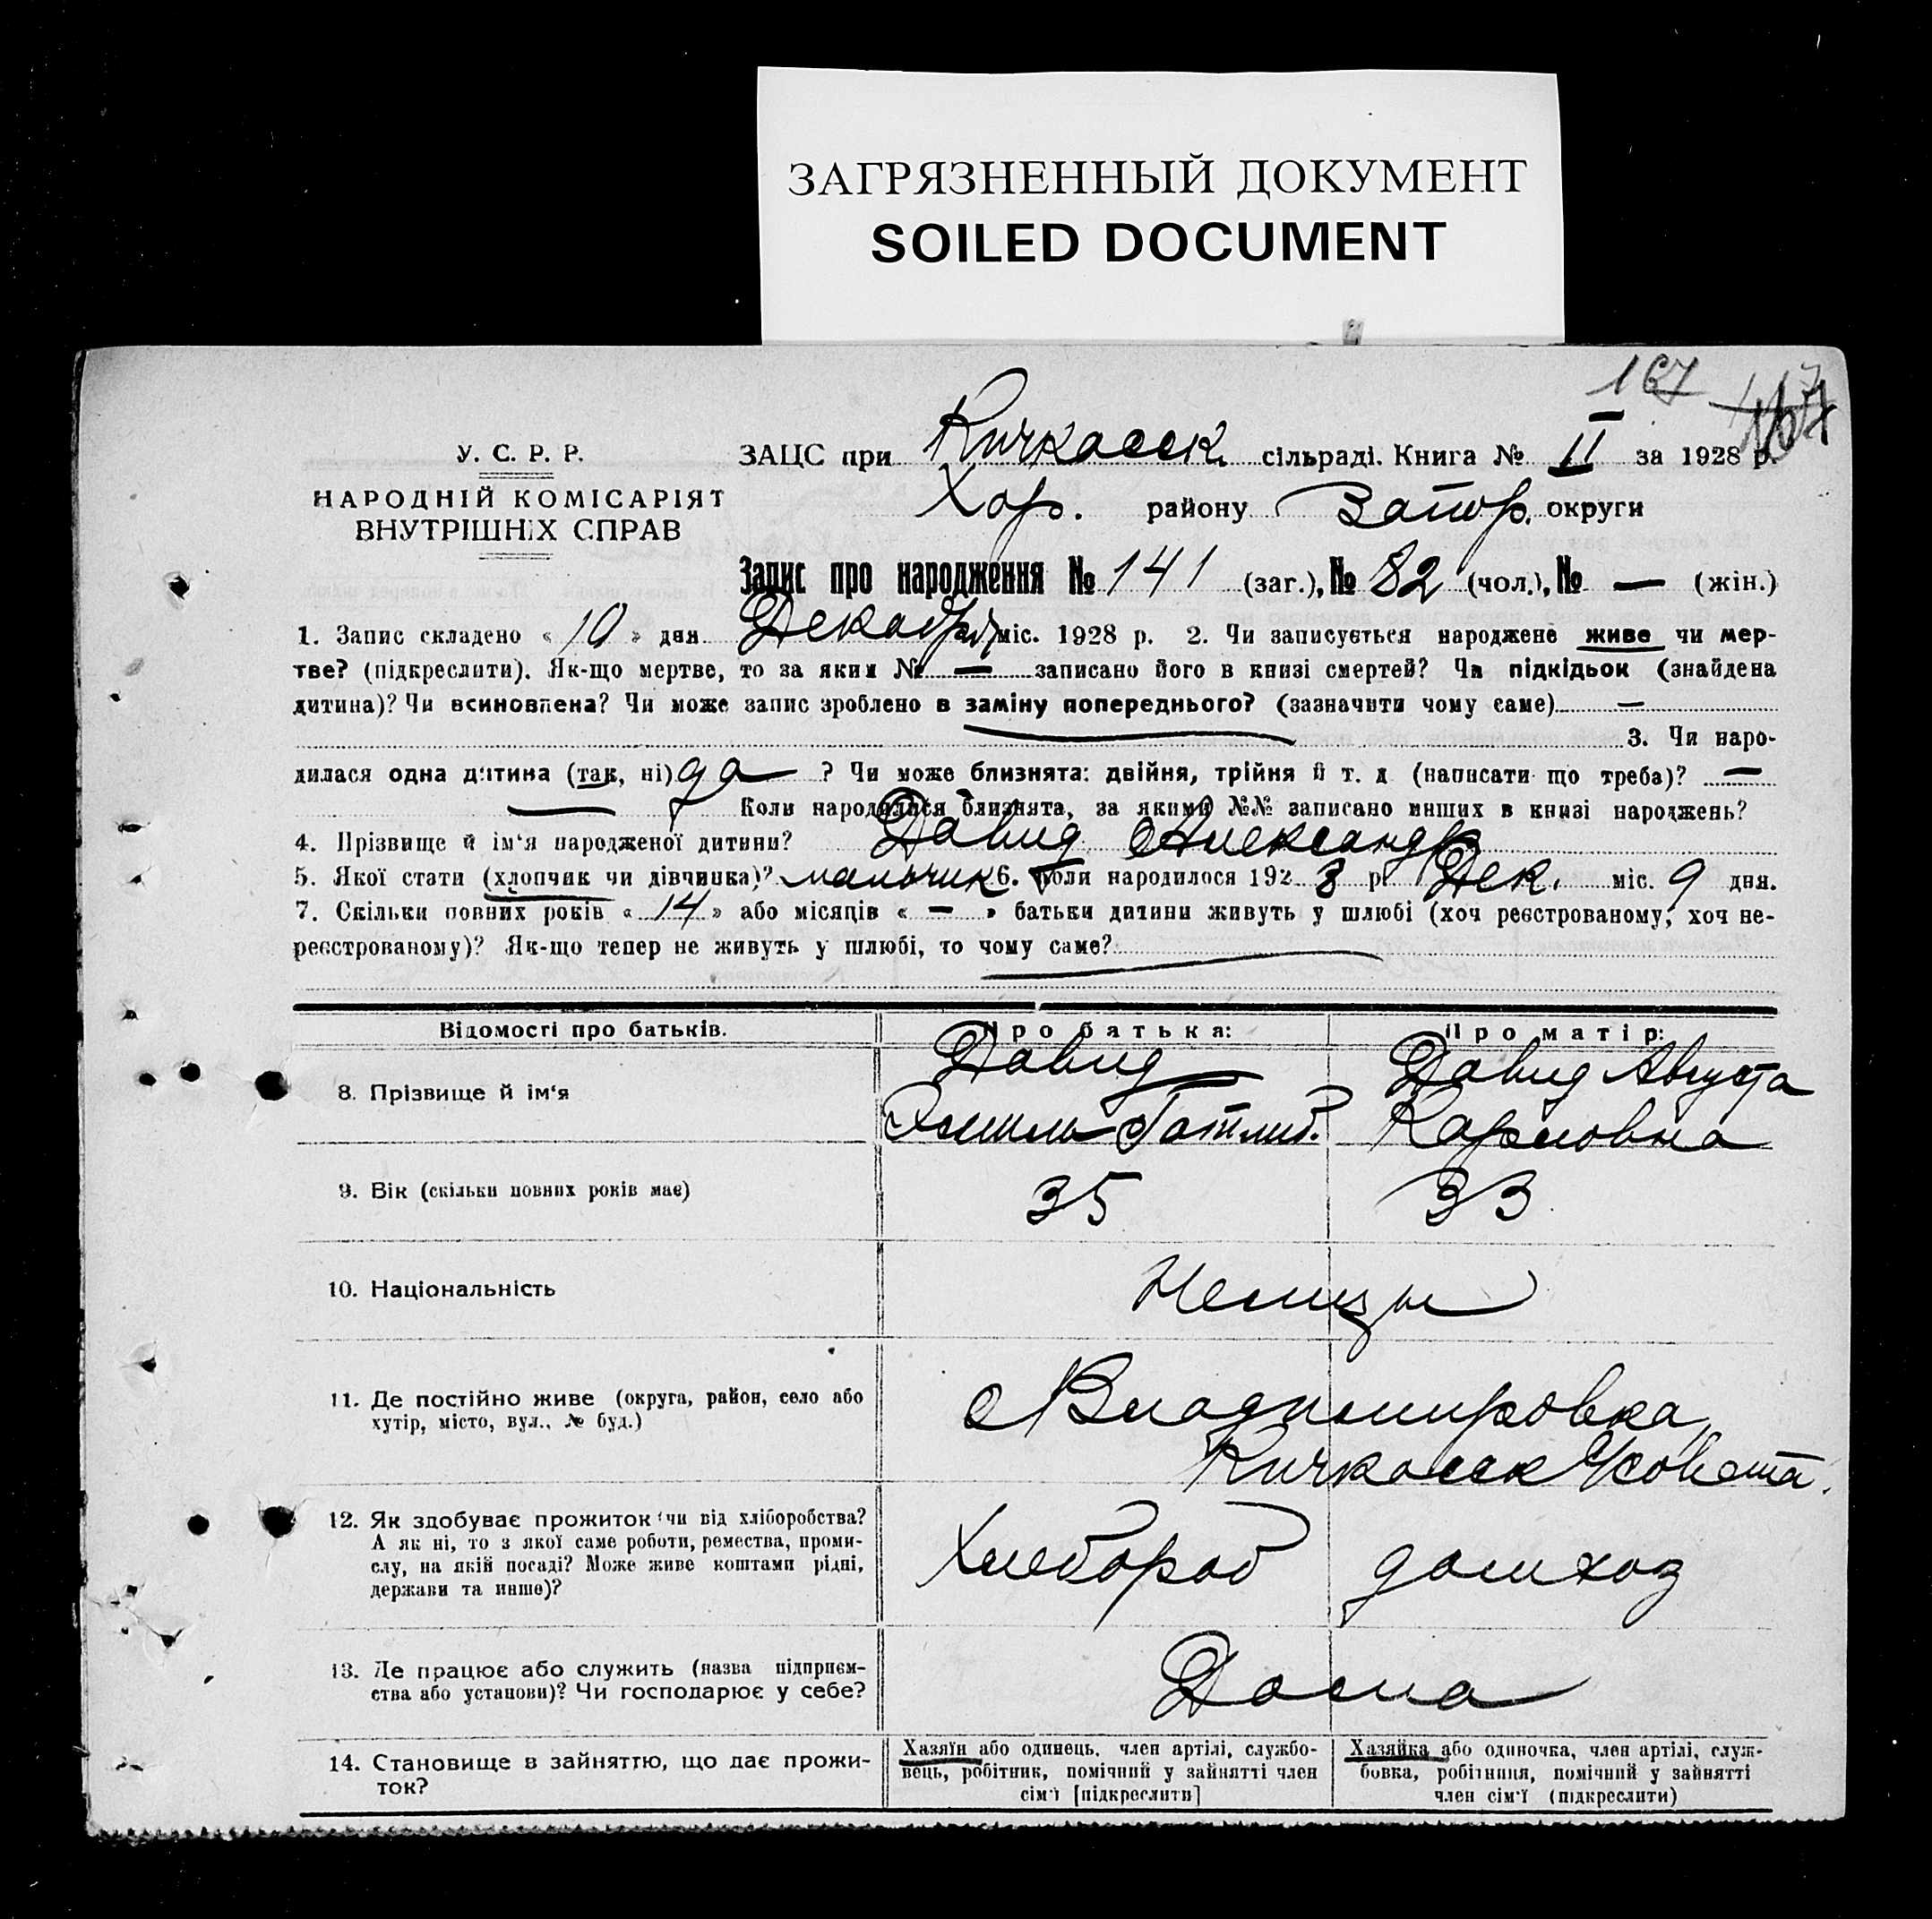 ЗАГРЯЗНЕННЫЙ ДОКУМЕНТ
SOILED DOCUMENT
167
У. С. Р. Р.
НАРОДНІЙ КОМІСАРІЯТ
ВНУТРІШНІХ СПРАВ
ЗАЦС при Кичкасск. сільраді. Книга № II за 1928 р.
Хор. району Запор. округи
Запис про народження № 141 (заг.), № 82 (чол.), № — (жін.)
1. Запис складено « 10 » дня Декабря міс. 1928 р. 2. Чи записується народжене живе чи мер-
тве? (підкреслити). Як-що мертве, то за яким № — записано його в книзі смертей? Чи підкідьок (знайдена
дитина)? Чи всиновлена? Чи може запис зроблено в заміну попереднього? (зазначити чому саме) —
3. Чи наро-
дилася одна дитина (так, ні) да ? Чи може близнята: двійня, трійня й т. д (написати що треба)? —
Коли народилися близнята, за якими №№ записано инших в книзі народжень?
4. Прізвище й ім'я народженої дитини? Давид Александр
5. Якої стати (хлопчик чи дівчинка)? мальчик 6. Коли народилося 1928 р. Дек. міс. 9 дня.
7. Скільки повних років « 14 » або місяців « — » батьки дитини живуть у шлюбі (хоч реєстрованому, хоч не-
реєстрованому)? Як-що тепер не живуть у шлюбі, то чому саме?
Відомості про батьків. Про батька: Про матір:
8. Прізвище й ім'я Давид Эмиль Готлиб. Давид Августа Карловна
9. Вік (скільки повних років має) 35 33
10. Національність Немцы
11. Де постійно живе (округа, район, село або
хутір, місто, вул., № буд.)
Владимировка,
Кичкасск с/совета.
12. Як здобуває прожиток (чи від хліборобства?
А як ні, то з якої саме роботи, ремества, проми-
слу, на якій посаді? Може живе коштами рідні,
держави та инше)?
Хлебороб домхоз
13. Де працює або служить (назва підприєм-
ства або установи)? Чи господарює у себе?
Дома
14. Становище в зайняттю, що дає прожи-
ток?
Хазяїн або одинець, член артілі, службо-
вець, робітник, помічний у зайнятті член
сім'ї [підкреслити]
Хазяйка або одиночка, член артілі, служ-
бовка, робітниця, помічний у зайнятті
член сім'ї (підкреслити)